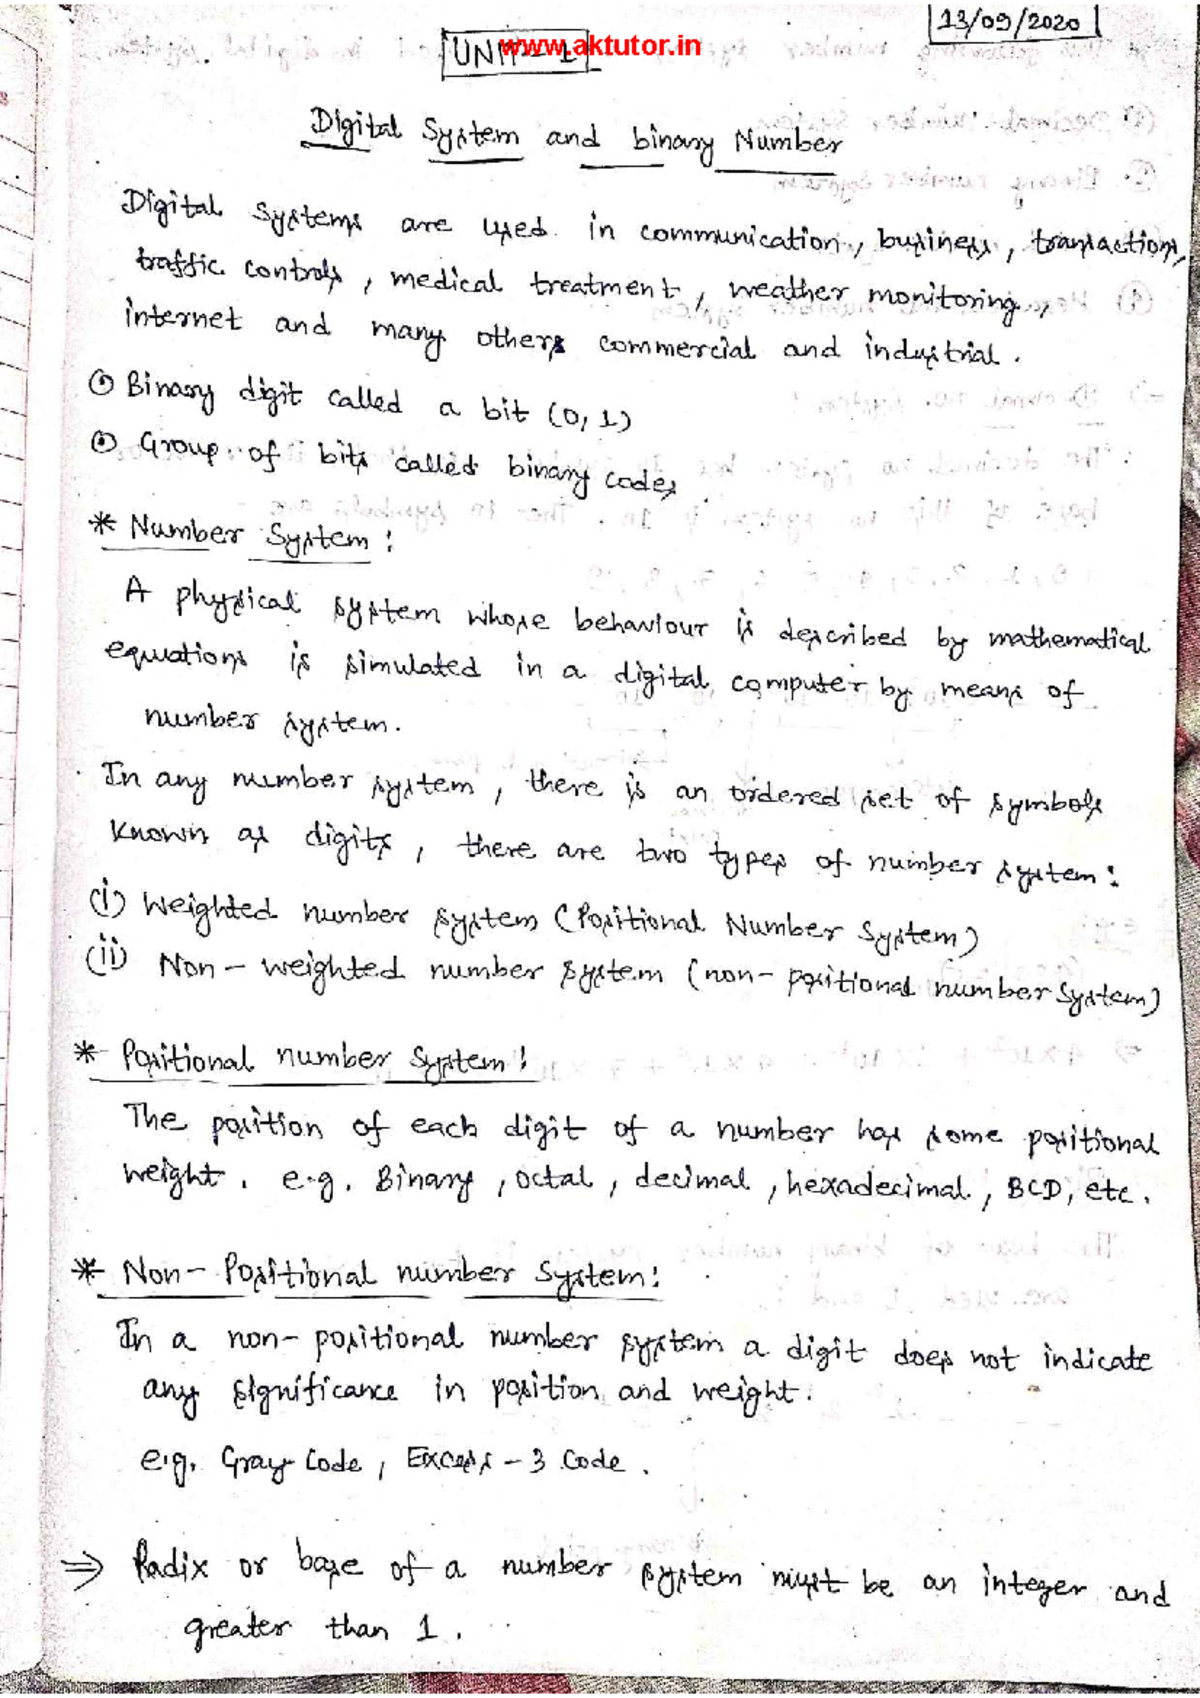 13/09/2020
UNIT - 1
www.aktutor.in
Digital System and binary Number
Digital systems are used in communication, business, transaction,
traffic controls, medical treatment, weather monitoring,
internet and many others commercial and industrial.
Binary digit called a bit (0, 1)
Group of bits called binary codes
* Number System:
A physical system whose behaviour is described by mathematical
equations is simulated in a digital computer by means of
number system.
In any number system, there is an ordered set of symbols
known as digits, there are two types of number system:
(i) Weighted number system (Positional Number System)
(ii) Non-weighted number system (non-positional number System)
* Positional number System:
The position of each digit of a number has some positional
weight. e.g. Binary, octal, decimal, hexadecimal, BCD, etc.
* Non-Positional number System:
In a non-positional number system a digit does not indicate
any significance in position and weight.
e.g. Gray Code, Excess-3 Code.
⇒ Radix or base of a number system must be an integer and
greater than 1.